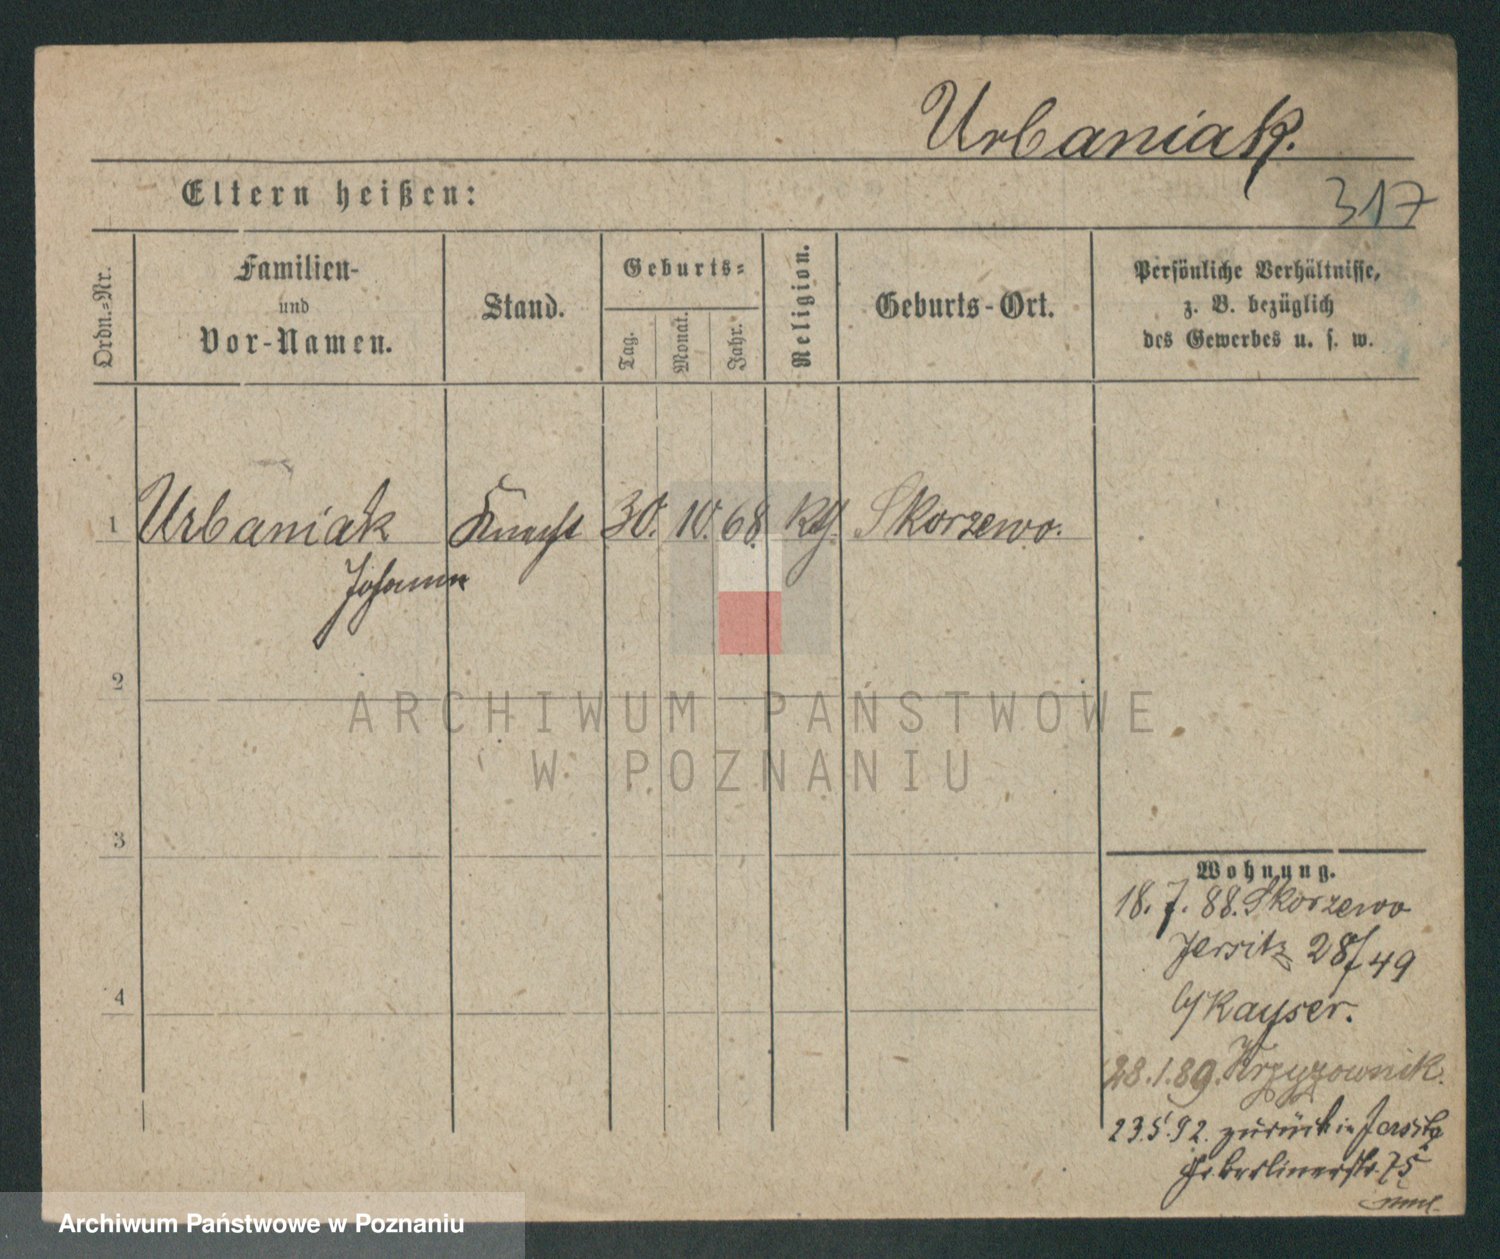 Urbaniak.
317
Eltern heißen:
Ordn.-Nr.
Familien-
und
Vor-Namen.
Stand.
Geburts-
Tag.
Monat.
Jahr.
Religion.
Geburts-Ort.
Persönliche Verhältnisse,
z. B. bezüglich
des Gewerbes u. s. w.
1 Urbaniak Knecht 30. 10. 68 kth. Skorzewo.
Johann
2
ARCHIWUM PAŃSTWOWE
W POZNANIU
3
4
Wohnung.
18. 7. 88. Skorzewo
Jersitz 28/49
b/Kayser.
28. 1. 89. Krzyzownik.
23.5.92. zurück in Jersitz
Gr. Berlinerstr. 75
Archiwum Państwowe w Poznaniu